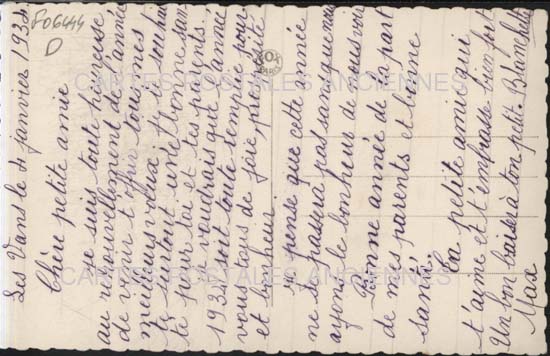 P06444
D
Les Vans le 4 janvier 1938
Chère petite amie
Je suis toute heureuse
au renouvellement de l'année
de venir t'offrir tous mes
meilleurs vœux. Je te souhai
te surtout une bonne san
té pour toi et tes parents.
Je voudrais que l'année
1938 soit toute remplie pour
vous tous de joie, prospérité
et bonheur.
Je pense que cette année
ne se passera pas sans que nous
ayons le bonheur de vous voir
Bonne année de la part
de mes parents et bonne
santé.
Ta petite amie qui
t'aime et t'embrasse bien fort
Un bon baiser à ton petit. Blanchette
Mac
CARTES POSTALES ANCIENNES
CARTES POSTALES ANCIENNES